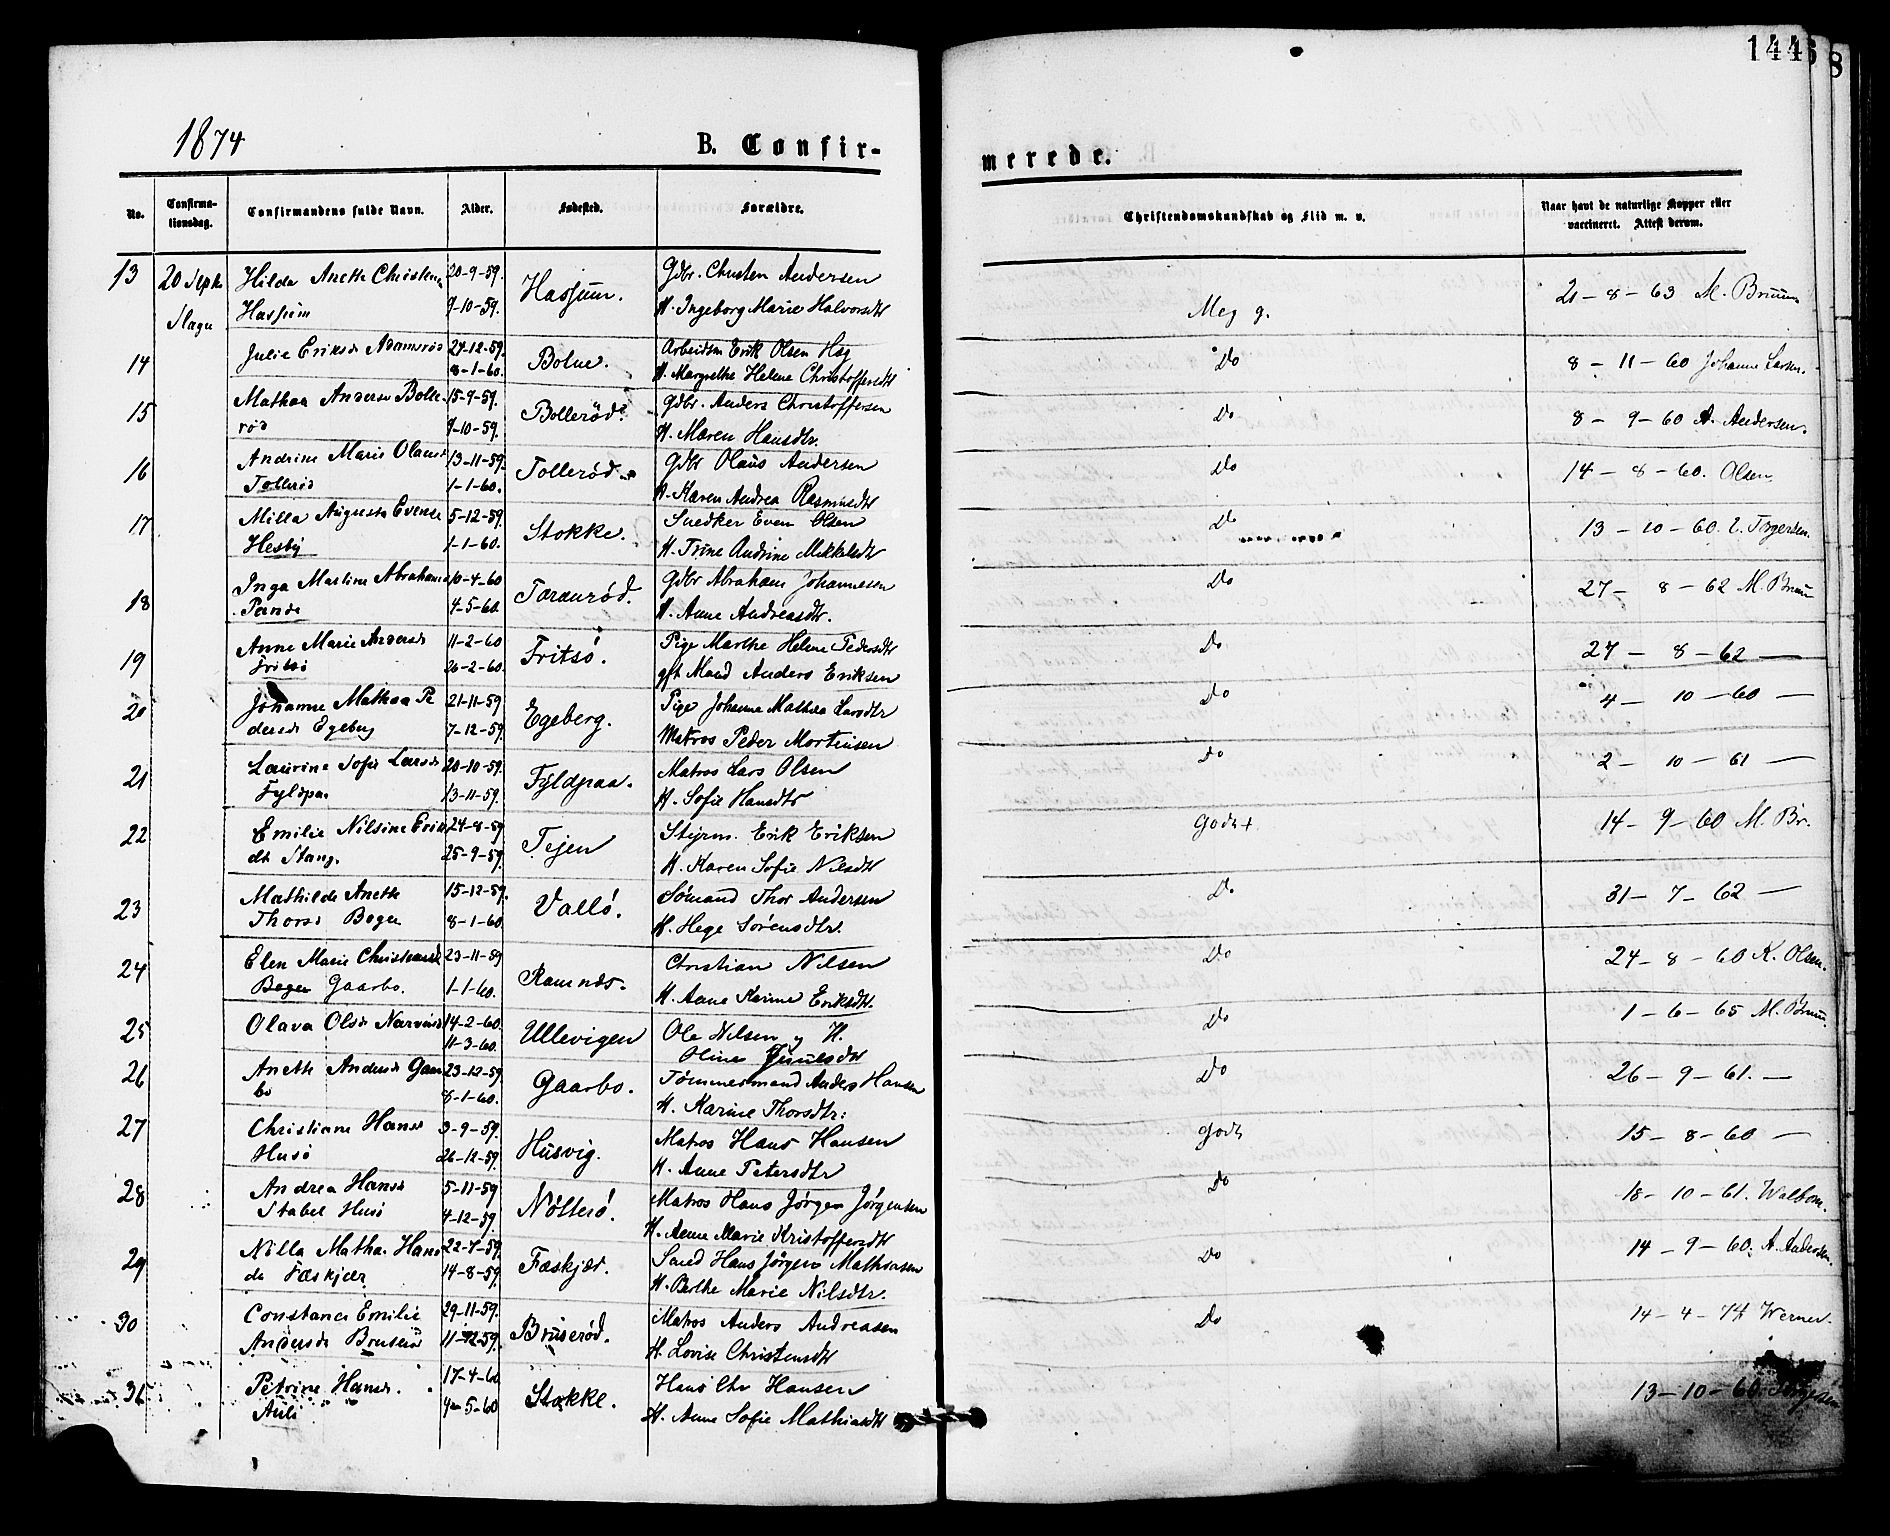 1446 8
1874
B. Confir-
merede.
No.
Confirma-
tionsdag.
Confirmandens fulde Navn.
Alder.
Fødested.
Forældre.
Christendomskundskab og Flid m. v.
Naar havt de naturlige Kopper eller
vaccineret. Attest derom.
13 20 Septr Hilda Anette Christens 20-9-59. Hassum. Gdbr. Christen Andersen
Slagn Hassum 9-10-59. H. Ingeborg Marie Halvorsdtr Meg g. 21-8-63 M. Bruun
14 Julie Eriksd Adamsrød 27-12-59. Bolne. Arbeidsm Erik Olsen Hsg Do 8-11-60 Johanne Larsen.
8-1-60. H. Margrethe Helene Christoffersdtr
15 Mathea Andersd Bolle- 15-9-59. Bollerød. Gdbr. Anders Christoffersen Do 8-9-60 A. Andersen.
rød 9-10-59. H. Maren Hansdtr.
16 Andrine Marie Olausd 13-11-59. Tollerød. Gdbr Olaus Andersen Do 14-8-60. Olsen
Tollerød 1-1-60. H. Karen Andrea Rasmusdtr
17 Milla Augusta Evensd 5-12-59. Stokke. Snedker Even Olsen Do 13-10-60. Torgersen.
Hesby 1-1-60. H. Trine Andrine Mikkelsdtr
18 Inga Martine Abrahams 10-4-60 Taranrød. Gdbr Abraham Johannesen Do 27-8-62 M. Bruun
Rande 4-5-60. H. Anne Andreasdtr.
19 Anne Marie Andersd 11-2-60 Fritsø. Pige Marthe Helene Pedersdtr Do 27-8-62 —
Fritsø 26-2-60. gft Mand Anders Eriksen
20 Johanne Mathea Pe 21-11-59 Egeberg. Pige Johanne Mathea Larsdtr Do 4-10-60 —
dersd Egeberg 7-12-59. Matros Peder Mortensen
21 Laurine Sofie Larsd 20-10-59. Fyldpaa. Matros Lars Olsen Do 2-10-61 —
Fyldpaa 13-11-59. H. Sofie Hansdtr
22 Emilie Nilsine Eriks 24-8-59 Tejen Styrm. Erik Eriksen Godt+ 14-9-60 M. Br.
dt Stang. 25-9-59. H. Karen Sofie Nilsdtr
23 Mathilde Anette 15-12-59. Vallø. Sømand Thor Andersen Do 31-7-62 —
Thorsd Bogen 8-1-60. H. Hege Sørensdtr.
24 Elen Marie Christiansd 23-11-59 Ramnæs. Christian Nilsen Do 24-8-60 K. Olsen.
Bogen Gaarbo. 1-1-60. H. Anne Karine Eriksdtr.
25 Olava Olsd Narverød 14-2-60. Ullevigen Ole Nilsen og H. Do 1-6-65 M. Bruun.
11-3-60. Oline
26 Anette Andersd Gaar 23-12-59 Gaarbo. Tømmermand Anders Hansen Do 26-9-61. —
bo 8-1-60. H. Karine Thorsdtr.
27 Christiane Hansd 3-9-59. Husvig. Matros Hans Hansen godt 15-8-60 —
Husø 26-12-59. H. Anne Petersdtr
28 Andrea Hansd 5-11-59 Nøtterø. Matros Hans Jørgen Jørgensen Do 18-10-61. Walbom.
Stabel Husø 4-12-59. H. Anne Marie Kristoffersdtr
29 Nilla Mathea Hans 22-7-59. Fæskjær. Smed Hans Jørgen Mathiasen Do 14-9-60. A. Andersen.
dr Fæskjær 14-8-59. H. Berthe Marie Nilsdtr.
30 Constance Emilie 29-11-59. Bruserød. Matros Anders Andreasen Do 14-4-74 Werner.
Andersd Bruserød 11-12-59. H. Lovise Christensdtr
31 Petrine Hansd. 17-4-60 Stokke. Hans Chr Hansen 13-10-60. Torgersen
Auli 4-5-60 H. Anne Sofie Mathiasdtr